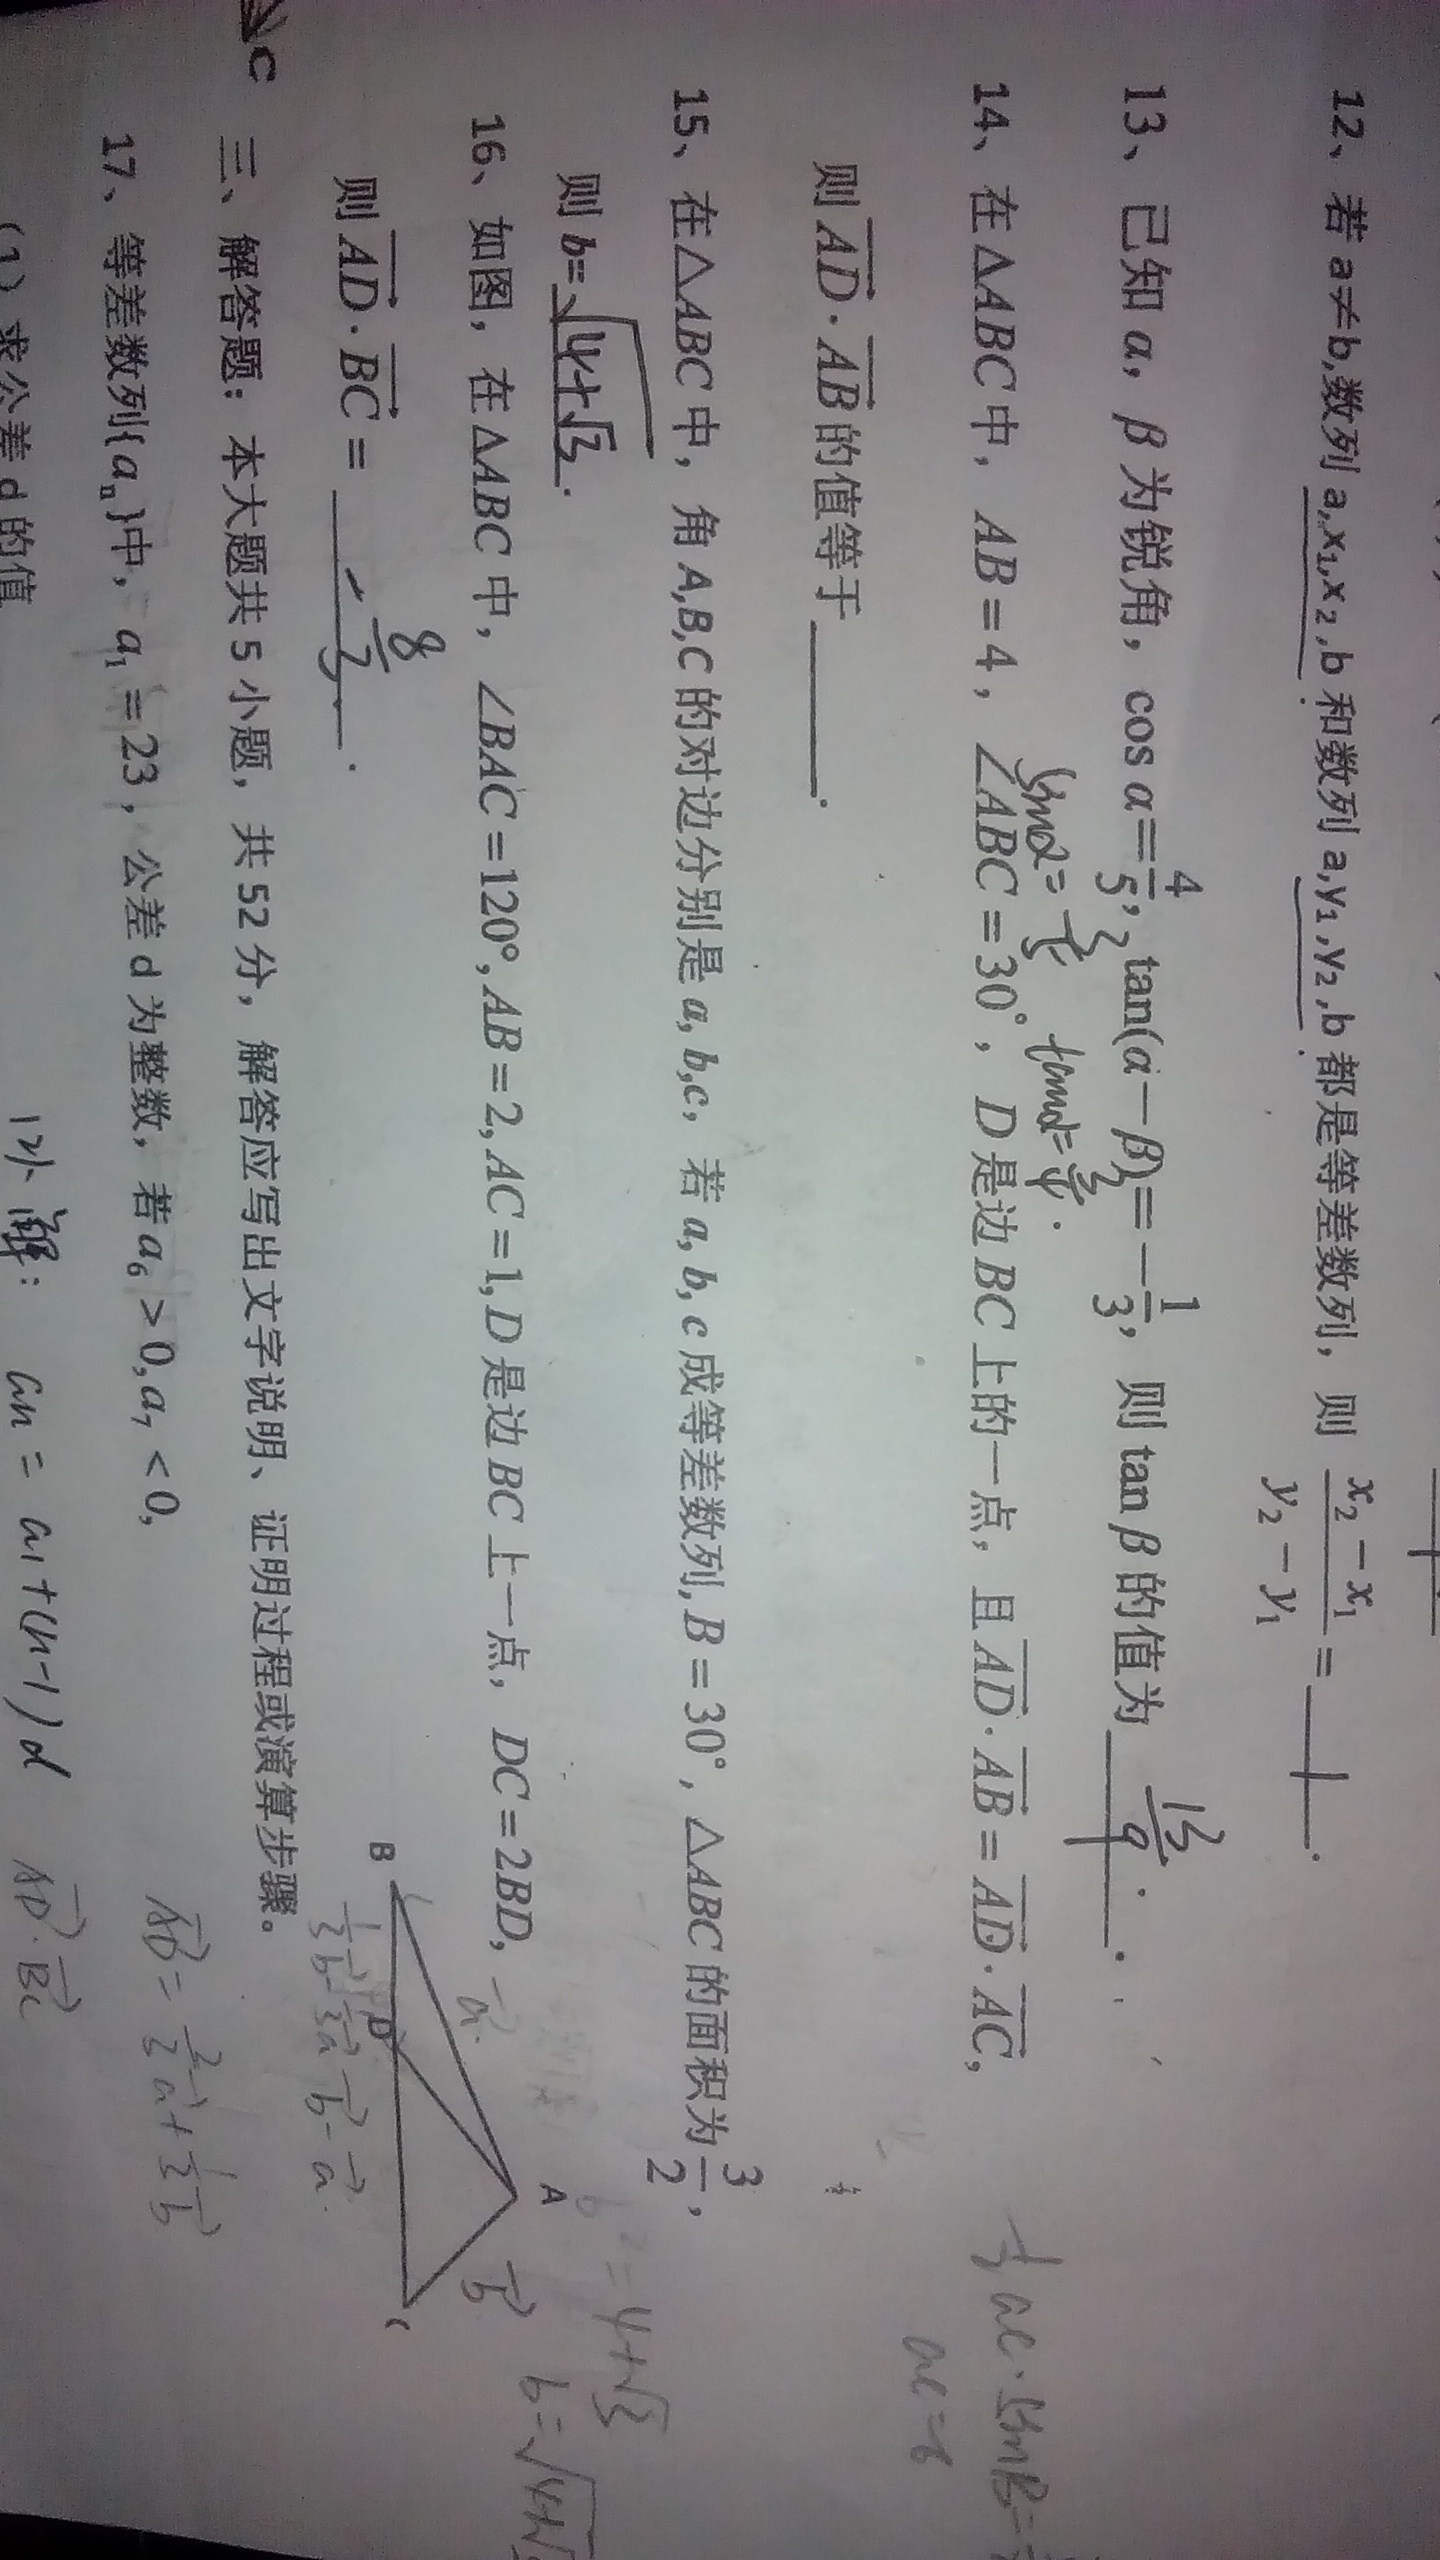 12、若 a≠b,数列 a,x₁,x₂,b 和数列 a,y₁,y₂,b 都是等差数列，则 (x₂－x₁)/(y₂－y₁) = 1 .
13、已知 α, β 为锐角，cos α = 4/5, tan(α－β) = －1/3, 则 tan β 的值为 13/9 .
sinα = 3/5 tanα = 3/4 .
14、在△ABC 中，AB = 4，∠ABC = 30°，D 是边 BC 上的一点，且 AD · AB = AD · AC,
则 AD · AB 的值等于 ______.
½ac·sinB=
ac=6
15、在△ABC 中，角 A,B,C 的对边分别是 a,b,c，若 a, b, c 成等差数列, B = 30°，△ABC 的面积为 3/2,
则 b= √4+√3 .
b²=4+√3
b=√4+√
16、如图，在△ABC 中，∠BAC =120°, AB = 2, AC = 1, D 是边 BC 上一点，DC = 2BD,
则 AD · BC = －8/3 .
A
B
D
C
a
b
⅓b－⅓a b－a
AD = ⅔a + ⅓b
AD · BC
三、解答题：本大题共 5 小题，共 52 分，解答应写出文字说明、证明过程或演算步骤。
17、等差数列{aₙ}中，a₁ = 23，公差 d 为整数，若 a₆ > 0, a₇ < 0,
(1) 求公差 d 的值
解: an = a₁+(n－1)d
C